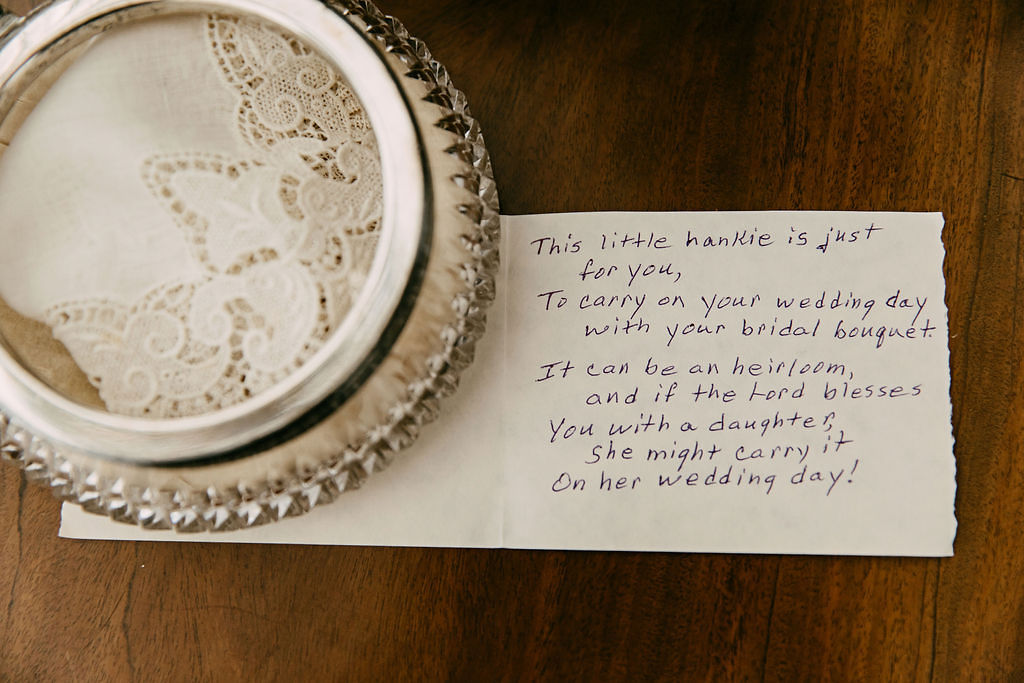 This little hankie is just
for you,
To carry on your wedding day
with your bridal bouquet.
It can be an heirloom,
and if the Lord blesses
You with a daughter,
She might carry it
On her wedding day!